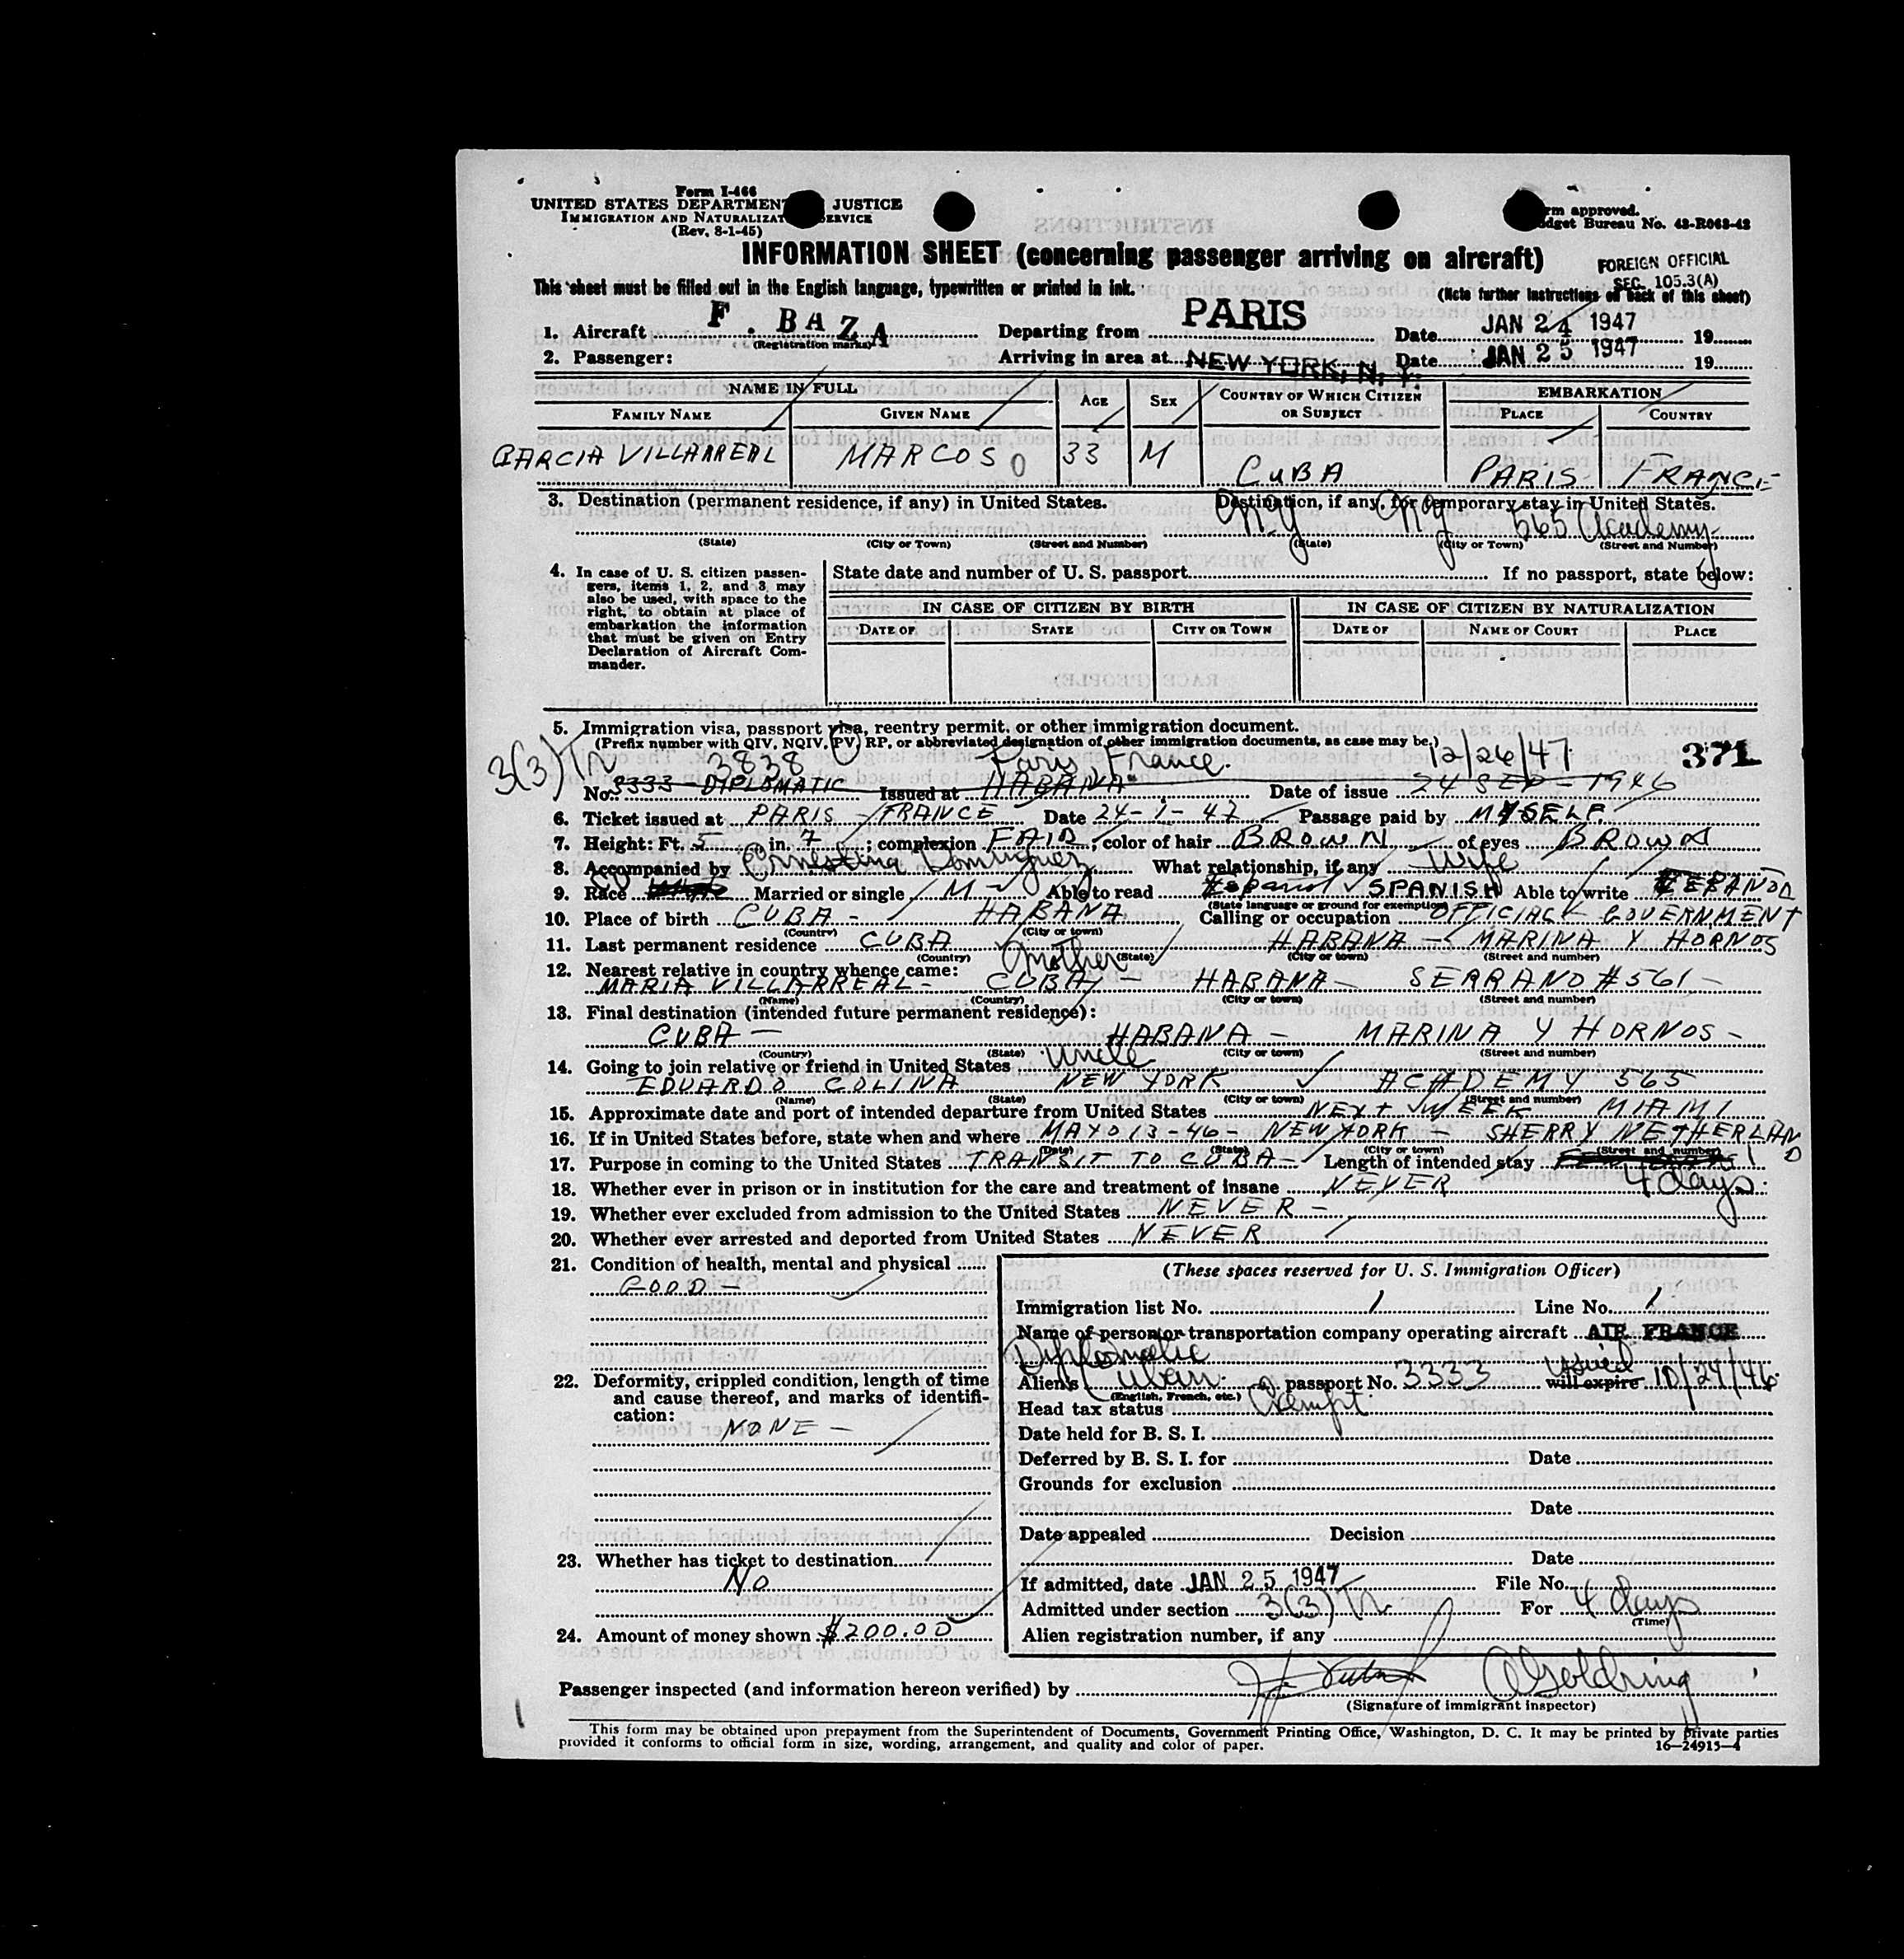 Form I-466
UNITED STATES DEPARTMENT JUSTICE
IMMIGRATION AND NATURALIZAT ERVICE
(Rev. 8-1-45)
rm approved.
dget Bureau No. 43-R063-42
INFORMATION SHEET (concerning passenger arriving on aircraft)
FOREIGN OFFICIAL
SEC. 105.3(A)
This sheet must be filled out in the English language, typewritten or printed in ink.
(Note further instructions on back of this sheet)
1. Aircraft F. BAZA Departing from PARIS Date JAN 24 1947 19
(Registration marks)
2. Passenger: Arriving in area at NEW YORK, N. Y. Date JAN 25 1947 19
NAME IN FULL AGE SEX COUNTRY OF WHICH CITIZEN OR SUBJECT EMBARKATION
FAMILY NAME GIVEN NAME PLACE COUNTRY
GARCIA VILLARREAL MARCOS O 33 M CUBA PARIS FRANCE
3. Destination (permanent residence, if any) in United States. Destination, if any, for temporary stay in United States.
N.Y N.Y 565 Academy
(State) (City or Town) (Street and Number) (State) (City or Town) (Street and Number)
4. In case of U. S. citizen passen-
gers, items 1, 2, and 3 may
also be used, with space to the
right, to obtain at place of
embarkation the information
that must be given on Entry
Declaration of Aircraft Com-
mander.
State date and number of U. S. passport If no passport, state below:
IN CASE OF CITIZEN BY BIRTH IN CASE OF CITIZEN BY NATURALIZATION
DATE OF STATE CITY OR TOWN DATE OF NAME OF COURT PLACE
5. Immigration visa, passport visa, reentry permit, or other immigration document.
(Prefix number with QIV, NQIV, PV, RP, or abbreviated designation of other immigration documents, as case may be.)
3(3) 3838 Paris, France. 12/26/47 371
No. 3333 - DIPLOMATIC Issued at HABANA Date of issue 24 SEP - 1946
6. Ticket issued at PARIS - FRANCE Date 24-1-47 Passage paid by MYSELF.
7. Height: Ft. 5 in. 7; complexion FAIR; color of hair BROWN of eyes BROWN
8. Accompanied by Ernestina Dominguez What relationship, if any Wife
9. Race Married or single M Able to read Español SPANISH Able to write
(State language or ground for exemption)
10. Place of birth CUBA - HABANA Calling or occupation OFFICIAL - GOVERNMENT
(Country) (City or town)
11. Last permanent residence CUBA HABANA - MARINA Y HORNOS
(Country) (State) (City or town) (Street and number)
12. Nearest relative in country whence came: Mother
MARIA VILLARREAL - CUBA - HABANA - SERRANO #561 -
(Name) (Country) (City or town) (Street and number)
13. Final destination (intended future permanent residence):
CUBA - HABANA - MARINA Y HORNOS -
(Country) (State) (City or town) (Street and number)
14. Going to join relative or friend in United States Uncle
EDUARDO COLINA NEW YORK ACADEMY 565
(Name) (State) (City or town) (Street and number)
15. Approximate date and port of intended departure from United States NEXT WEEK MIAMI
16. If in United States before, state when and where MAYO 13-46 - NEW YORK - SHERRY NETHERLAND
(Date) (State) (City or town) (Street and number)
17. Purpose in coming to the United States TRANSIT TO CUBA - Length of intended stay
18. Whether ever in prison or in institution for the care and treatment of insane NEVER 4 days
19. Whether ever excluded from admission to the United States NEVER -
20. Whether ever arrested and deported from United States NEVER
21. Condition of health, mental and physical
GOOD -
22. Deformity, crippled condition, length of time
and cause thereof, and marks of identifi-
cation:
NONE -
23. Whether has ticket to destination
No
24. Amount of money shown $200.00
(These spaces reserved for U. S. Immigration Officer)
Immigration list No. 1 Line No. 1
Name of person or transportation company operating aircraft AIR FRANCE
Diplomatic
Alien's Cuban passport No. 3333 issued will expire 10/24/46
(English, French, etc.)
Head tax status Exempt
Date held for B. S. I.
Deferred by B. S. I. for Date
Grounds for exclusion
Date
Date appealed Decision
Date
If admitted, date JAN 25 1947 File No.
Admitted under section 3(3) For 4 days
(Time)
Alien registration number, if any
Passenger inspected (and information hereon verified) by A Goldring
(Signature of immigrant inspector)
This form may be obtained upon prepayment from the Superintendent of Documents, Government Printing Office, Washington, D. C. It may be printed by private parties
provided it conforms to official form in size, wording, arrangement, and quality and color of paper.
16-24915-4